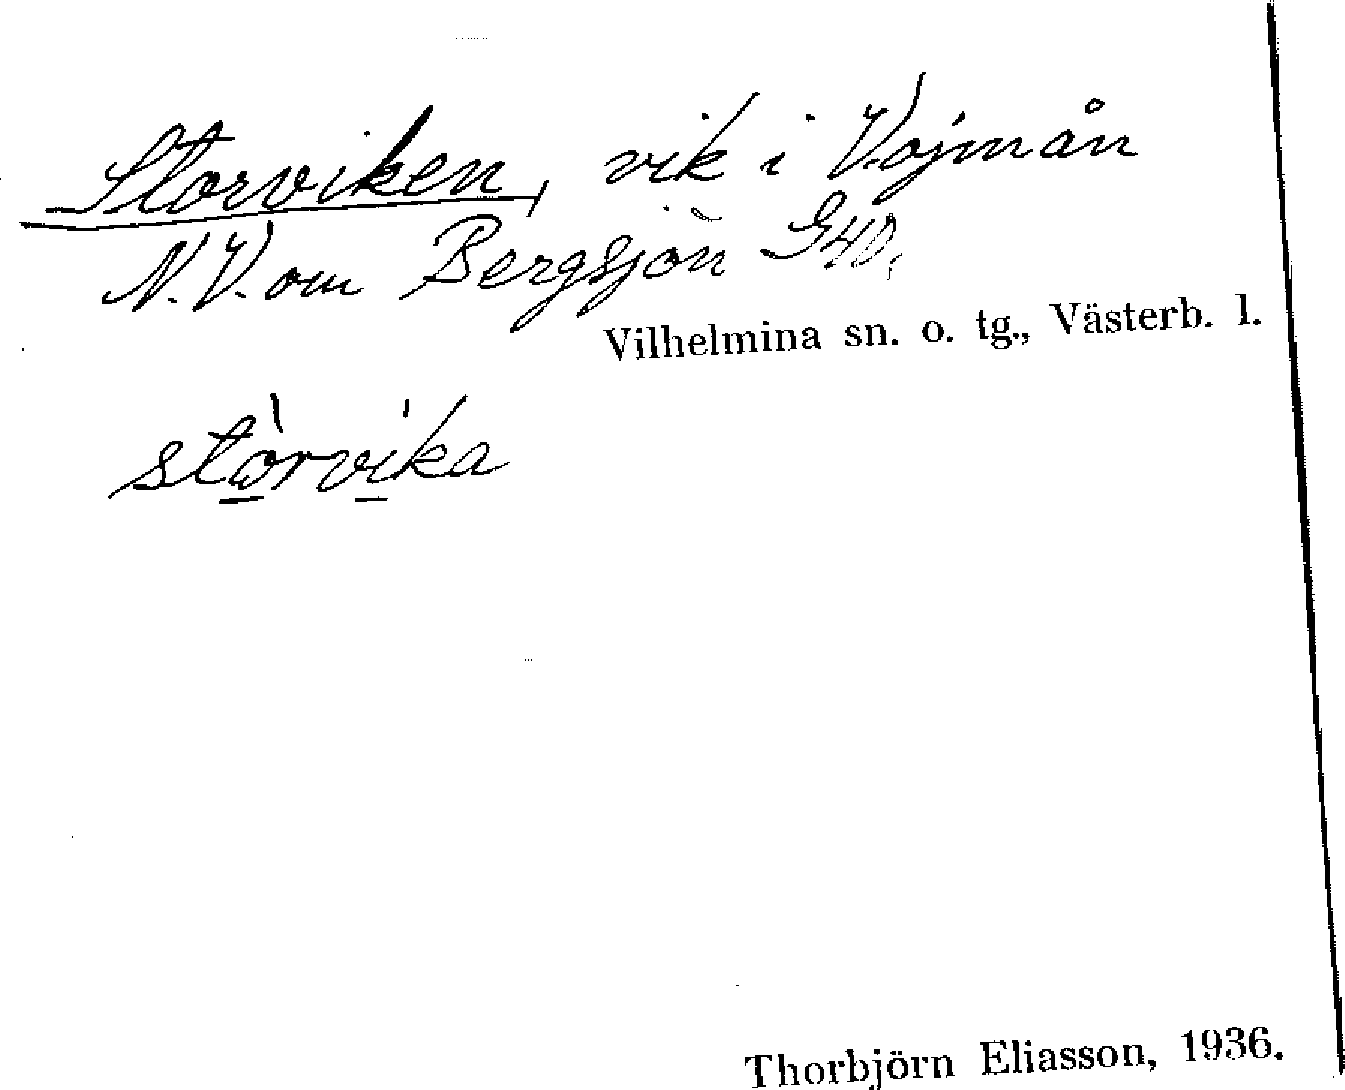 Storviken, vik i Vojmån
N.V. om Bergsjön G40.
Vilhelmina sn. o. tg., Västerb. l.
stòrvika
Thorbjörn Eliasson, 1936.